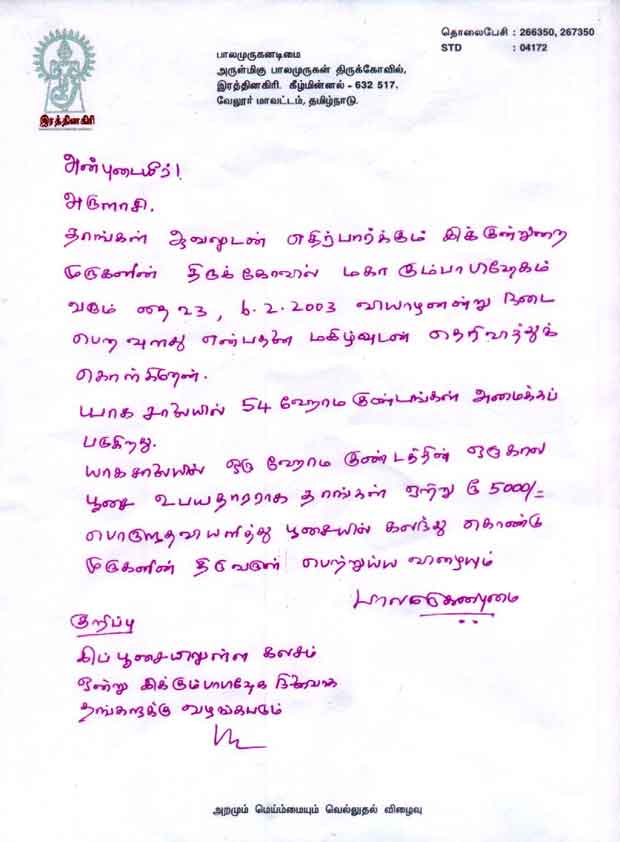 தொலைபேசி : 266350, 267350
STD : 04172
பாலமுருகனடிமை
அருள்மிகு பாலமுருகன் திருக்கோவில்,
இரத்தினகிரி. கீழ்மின்னல் - 632 517.
வேலூர் மாவட்டம், தமிழ்நாடு.
இரத்தினகிரி
அன்புடையீர்!
அருளாசி.
தாங்கள் ஆவலுடன் எதிர்பார்க்கும் இக்குன்றுறை
முருகனின் திருக்கோவில் மகா கும்பாபிஷேகம்
வரும் தை 23, 6.2.2003 வியாழனன்று நடை
பெறவுளது என்பதனை மகிழ்வுடன் தெரிவித்துக்
கொள்கிறேன்.
யாக சாலையில் 54 ஹோம குண்டங்கள் அமைக்கப்
படுகிறது.
யாகசாலையில் ஒரு ஹோம குண்டத்தின் ஒருகால
பூசை உபயதாரராக தாங்கள் ஏற்று ரூ 5000/=
பொருளுதவியளித்து பூசையில் கலந்து கொண்டு
முருகனின் திருவருள் பெற்றுய்ய விழையும்
பாலமுருகனடிமை
குறிப்பு
இப் பூசையிலுள்ள கலசம்
ஒன்று இக்கும்பாபிஷேக நினைவாக
தங்களுக்கு வழங்கப்படும்
அறமும் மெய்ம்மையும் வெல்லுதல் விழைவு